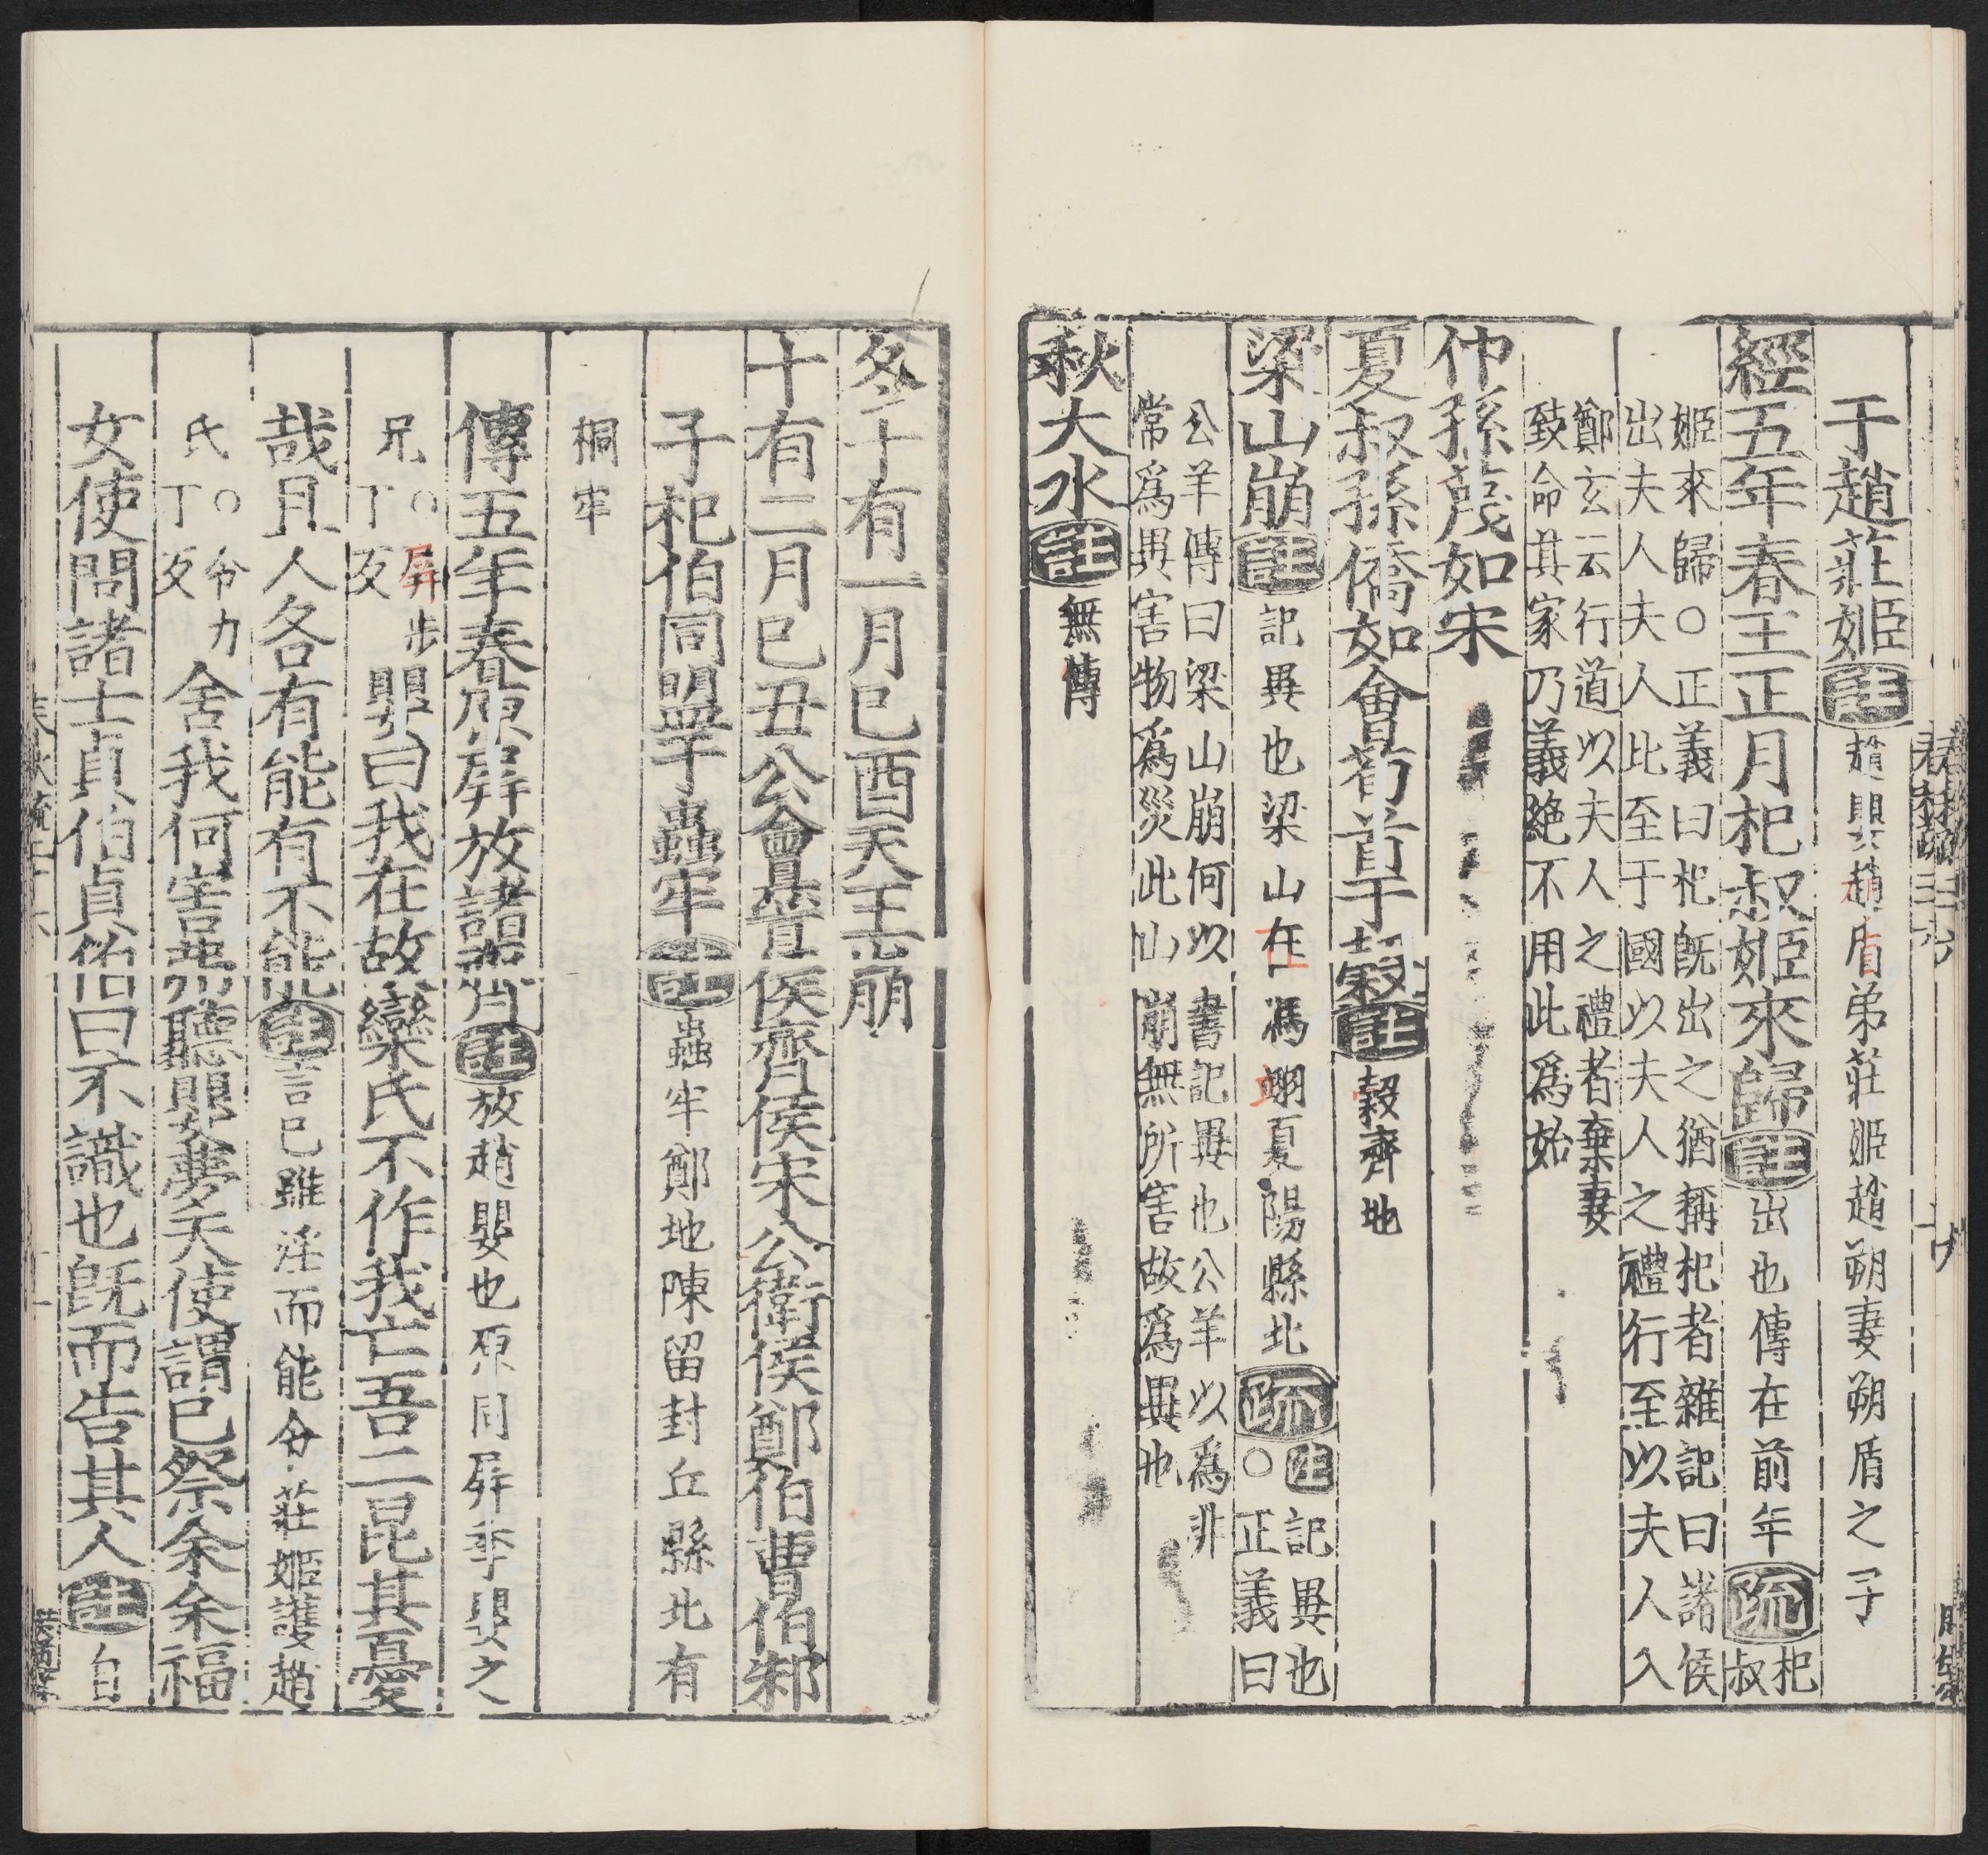 于趙莊姬註趙嬰趙盾弟莊姬趙朔妻朔盾之子
經五年春王正月杞叔姬來歸註出也傳在前年疏杞叔
姬來歸○正義曰杞旣出之猶稱杞者雜記曰諸侯
出夫人夫人比至于國以夫人之禮行至以夫人入
鄭玄云行道以夫人之禮者棄妻
致命其家乃義絶不用此爲始
仲孫蔑如宋
夏叔孫僑如會荀首于穀註穀齊地
梁山崩註記異也梁山在馮翊夏陽縣北疏註記異也○正義曰
公羊傳曰梁山崩何以書記異也公羊以爲非
常爲異害物爲災此山崩無所害故爲異也
秋大水註無傳
冬十有一月己酉天王崩
十有二月己丑公會晉侯齊侯宋公衛侯鄭伯曹伯邾
子杞伯同盟于蟲牢註蟲牢鄭地陳留封丘縣北有
桐牢
傳五年春原屏放諸齊註放趙嬰也原同屏季嬰之
兄○屏步丁反嬰曰我在故欒氏不作我亡吾二昆其憂
哉且人各有能有不能註言己雖淫而能令莊姬護趙
氏○令力丁反舍我何害弗聽嬰夢天使謂己祭余余福
女使問諸士貞伯貞伯曰不識也旣而告其人註自